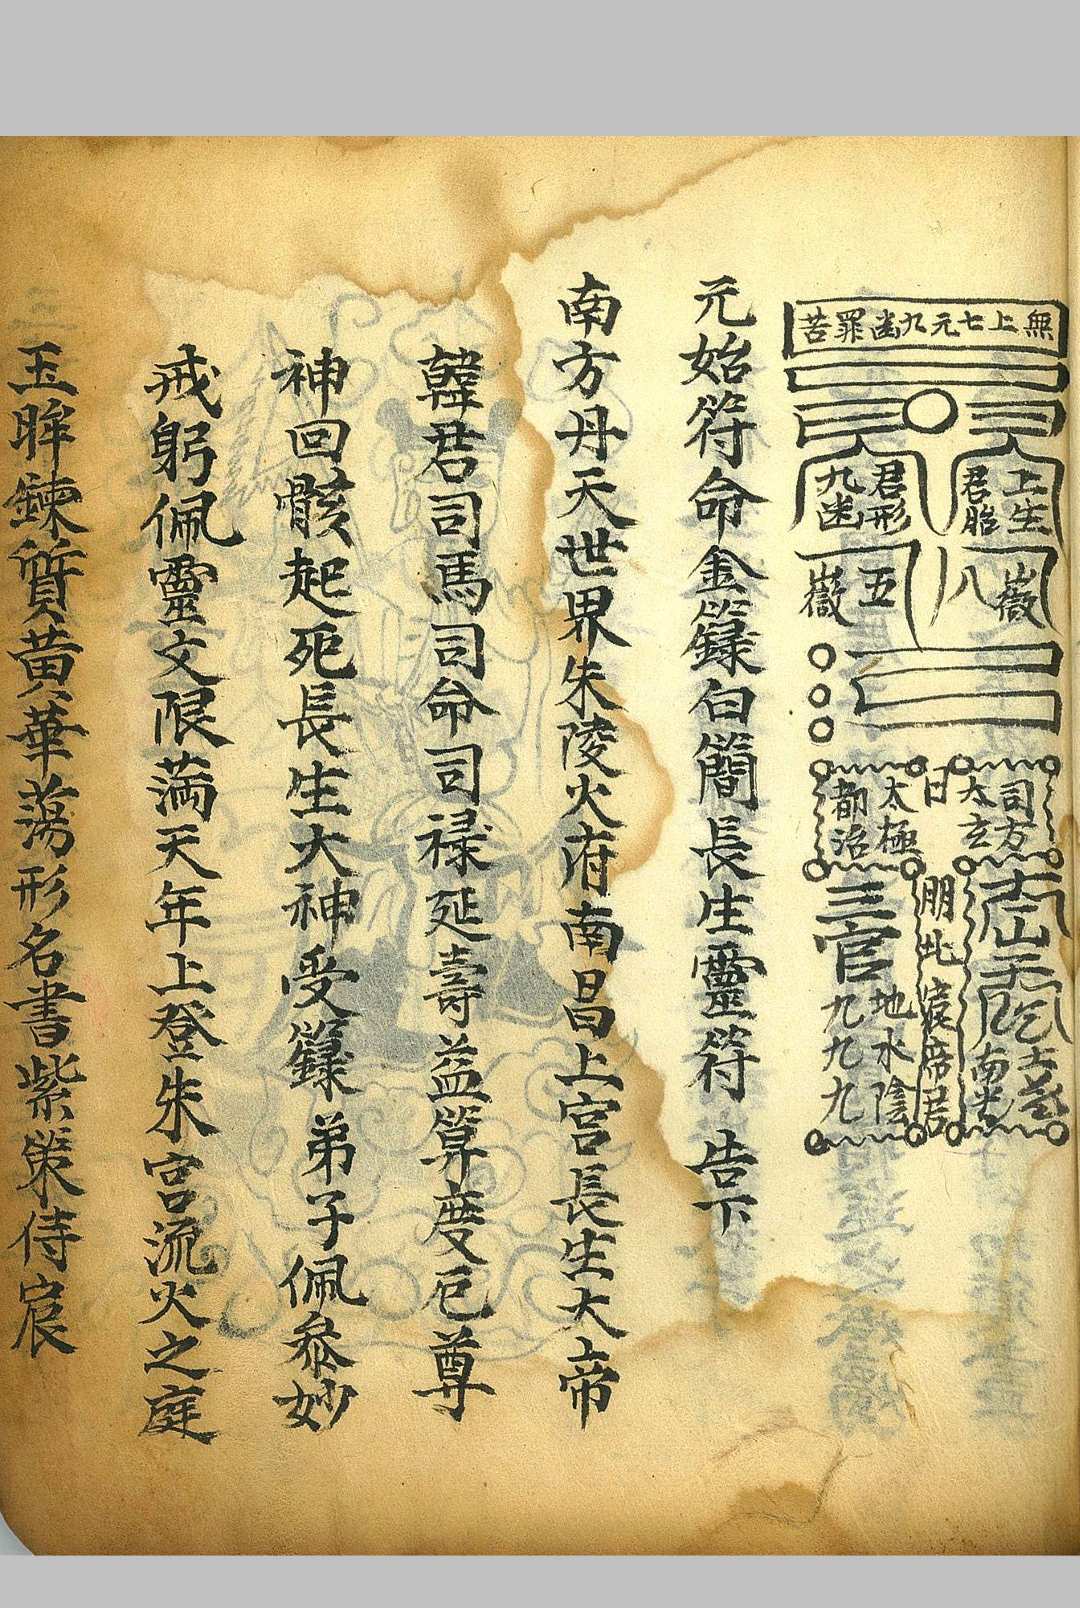 無上七元九幽罪苦
上生
君胎
君形
九幽
八嶽
五嶽
司方
太玄
日
太極
都治
三官
地水陰
九九九
南
君
元始符命金籙白簡長生靈符　告下
南方丹天世界朱陵火府南昌上宮長生大帝
韓君司馬司命司祿延壽益算度厄尊
神回骸起死長生大神受籙弟子佩叅妙
戒躬佩靈文限滿天年上登朱宮流火之庭
玉眸鍊質黃華蕩形名書紫策侍宸